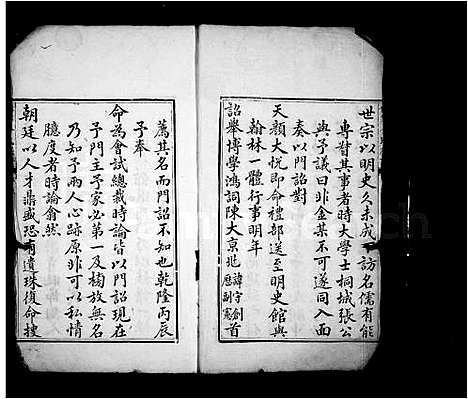 世宗以明史久未成訪名儒有能
專對其事者時大學士桐城張公
與予議曰非金某不可遂同入面
奏以門詔對
天顏大悅即命禮部送至明史館與
翰林一體行事明年
詔舉博學鴻詞陳大京兆諱守創歷副憲首
薦其名而門詔不知也乾隆丙辰
予奉
命為會試總裁時論皆以門詔現在
予門主予家必第一及榜放無名
乃知予兩人心跡原非可以私情
臆度者時論翕然
朝廷以人才鼎盛恐有遺珠復命搜